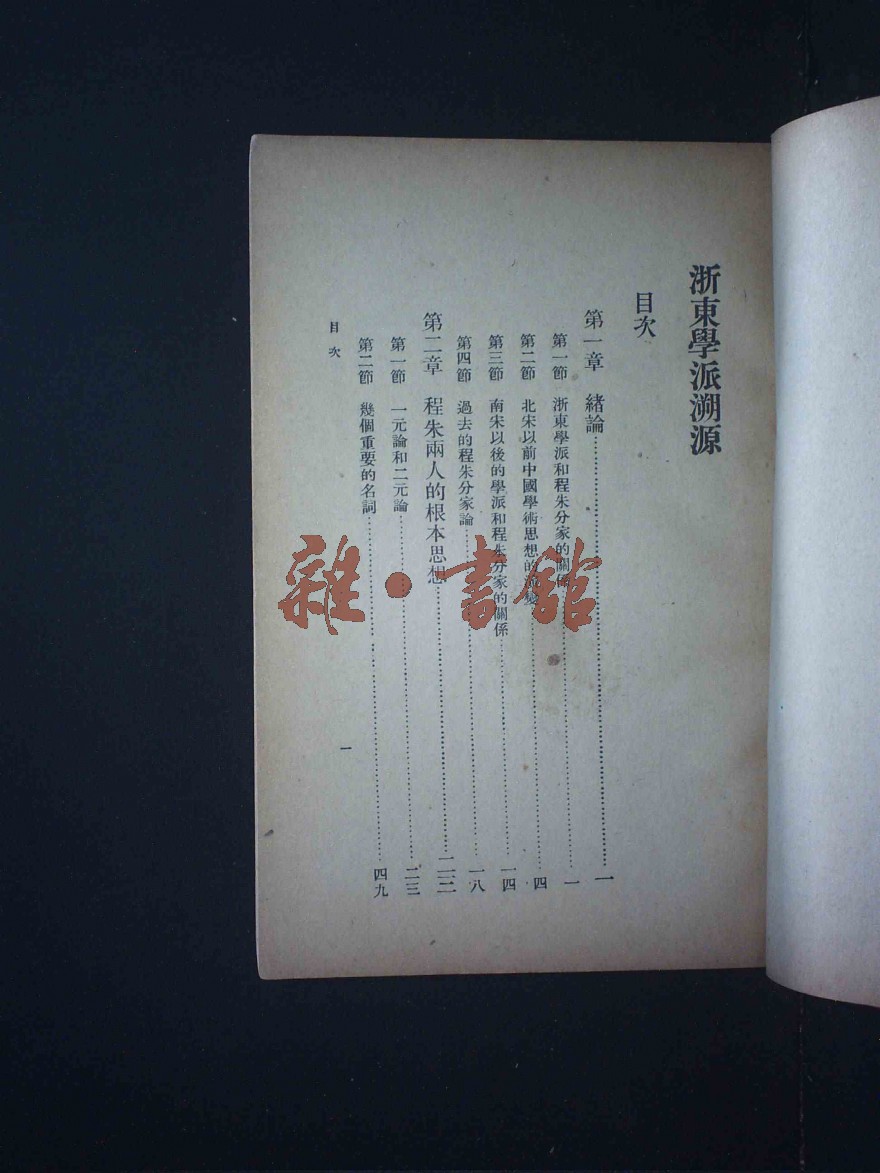 浙東學派溯源
目次
第一章 緒論……一
第一節 浙東學派和程朱分家的關係……一
第二節 北宋以前中國學術思想的變……四
第三節 南宋以後的學派和程朱分家的關係……一四
第四節 過去的程朱分家論……一八
第二章 程朱兩人的根本思想……二三
第一節 一元論和二元論……二三
第二節 幾個重要的名詞……四九
目次
一
雜·書館